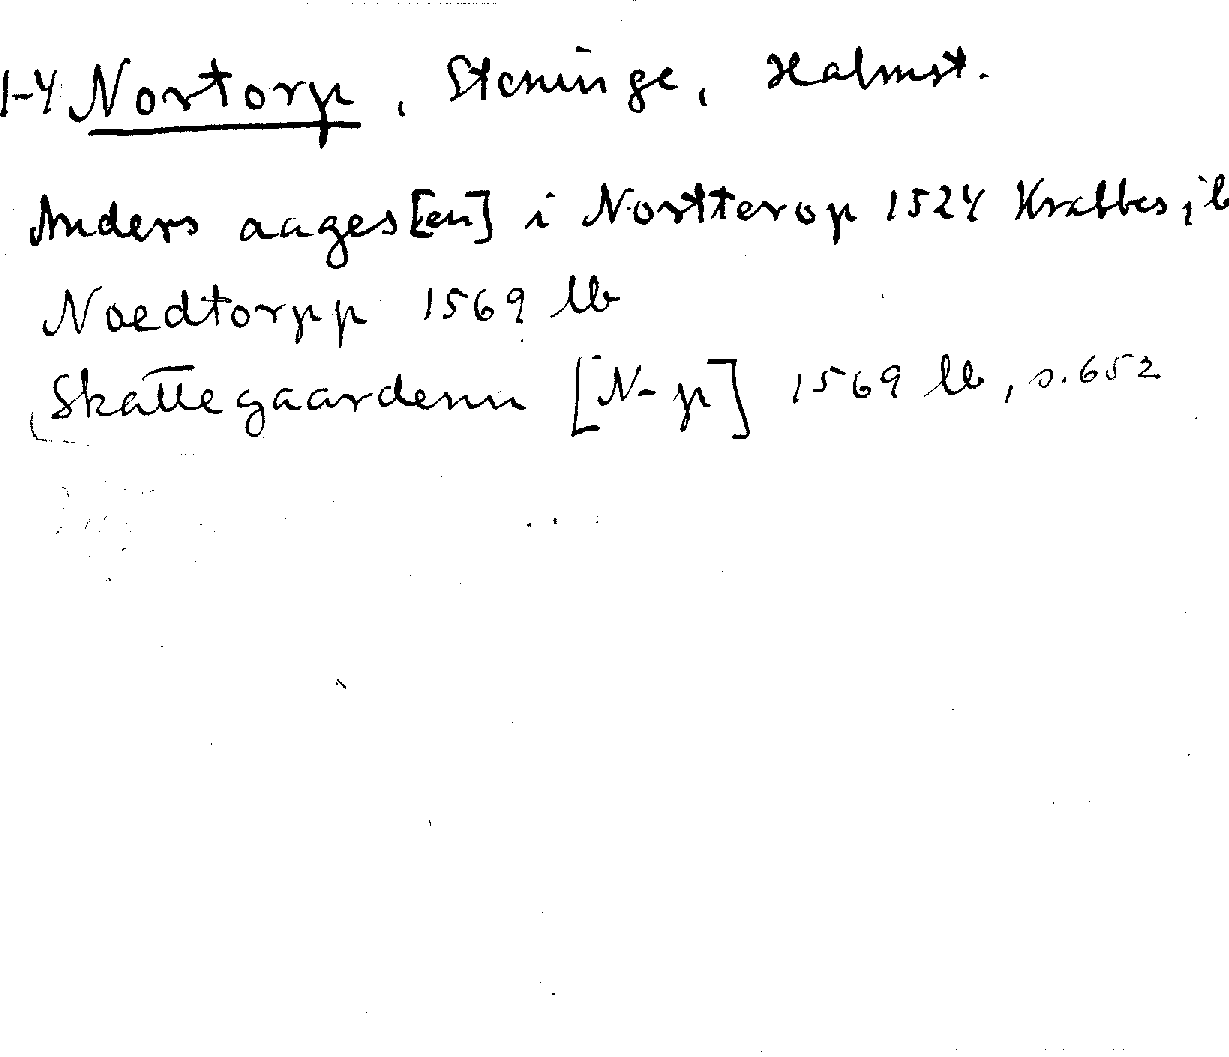 1-4 Nortorp, Steninge, Halmst.
Anders aages[en] i Nortterop 1524 Krabbes jb
Noedtorpp 1569 lb
Skattegaardenn [N-p] 1569 lb, s. 652